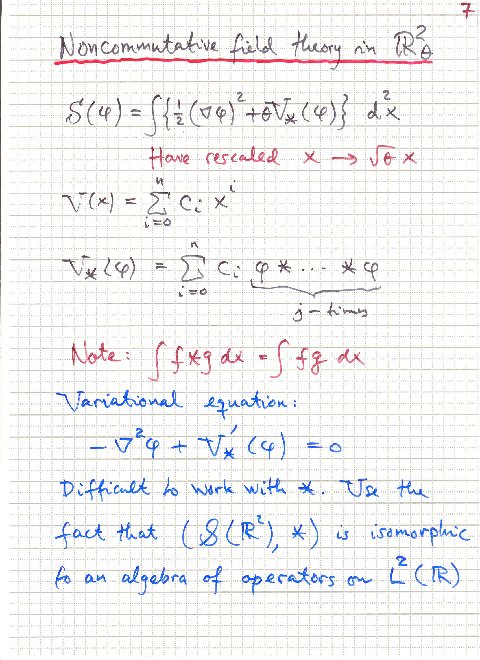 7
Noncommutative field theory in ℝ²_θ
S(φ) = ∫{½(∇φ)² + θV_*(φ)} d²x
Have rescaled x → √θ x
V(x) = Σ_{i=0}^{n} c_i x^i
V_*(φ) = Σ_{i=0}^{n} c_i φ * ··· * φ
j-times
Note: ∫ f * g dx = ∫ f g dx
Variational equation:
-∇²φ + V_*'(φ) = 0
Difficult to work with *. Use the
fact that (S(ℝ²), *) is isomorphic
to an algebra of operators on L²(ℝ)